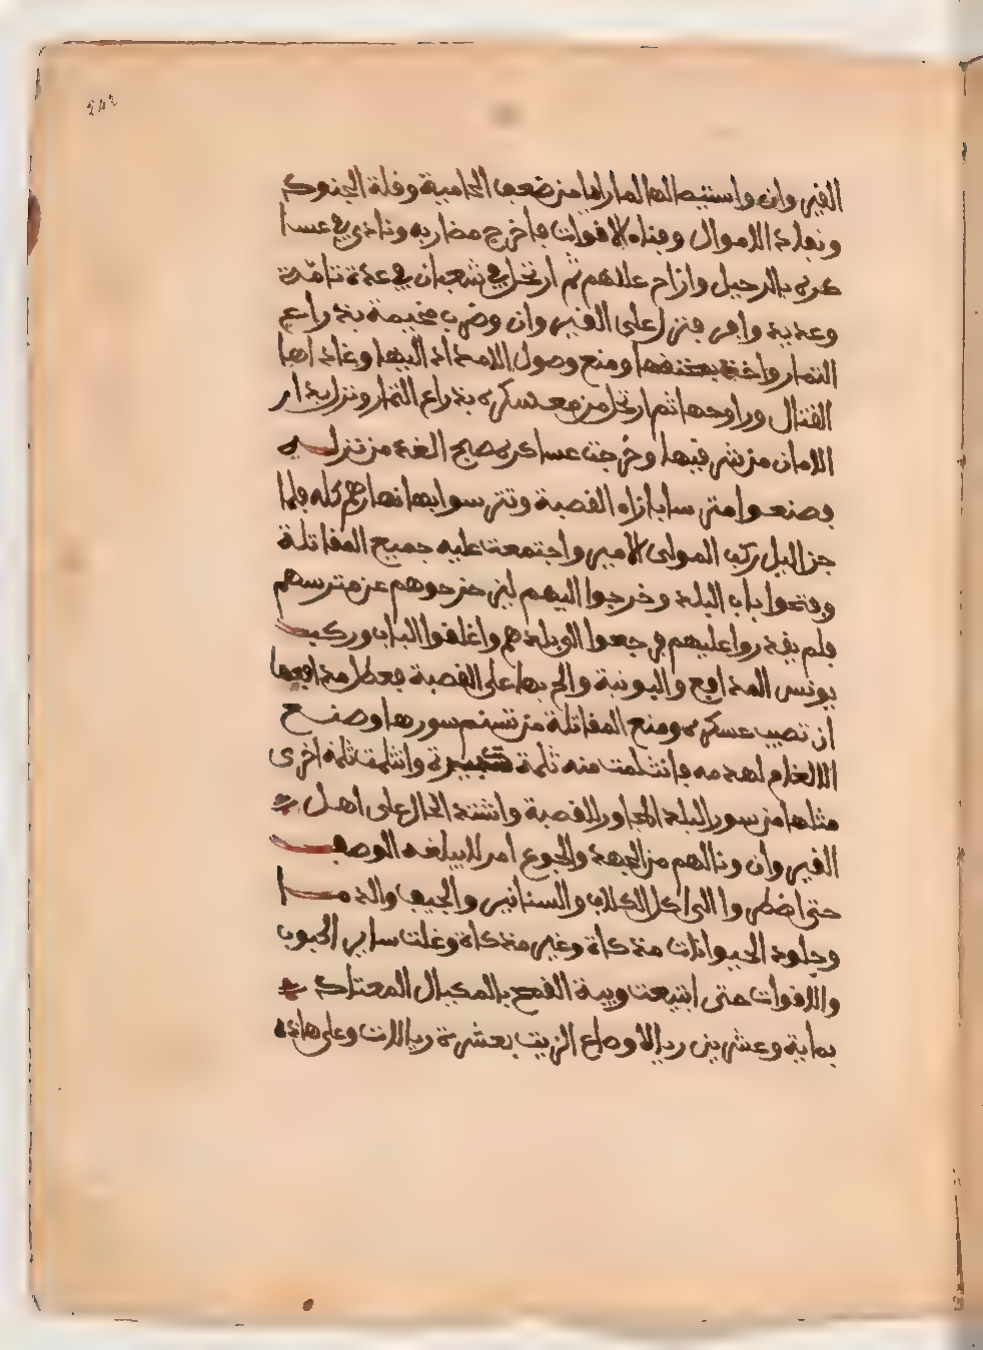 242
القيروان واستيصالها لما راى من ضعف الحامية وقلة الجنود
ونفاد الاموال وفناء الاقوات فاخرج مضاربه ونادى في عسا
كره بالرحيل وازاح عللهم ثم ارتحل في شعبان في عدة تامّة
وعدية وافر فنزل على القيروان وضرب مخيمه بذراع
التمار واخذ بمخنقها ومنع وصول الامداد اليها وغاداها
القتال وراوحها ثم ارتحل من معسكره بذراع التمار ونزل بدار
الامان من شرقيها وخرجت عساكره صبح الغد من نزله
فصنعوا متريسا بازاء القصبة وتتريسوا بها نهارهم كله فلما
جن اليل ركب المولى الامير واجتمعت عليه جميع المقاتلة
وفتحوا باب البلد وخرجوا اليهم ليزحزحوهم عن متريسهم
فلم يقدروا عليهم فرجعوا الى بلدهم واغلقوا الباب وركب
يونس المدافع والبونبة والح بها على القصبة فعطل مدافعها
ان تصيب عسكره ومنع المقاتلة من تسنم سورها وصنع
الالغام لهدمه فانثلمت منه ثلمة كبيرة وانثلمت ثلمة اخرى
مثلها من سور البلد المجاور للقصبة واشتد الحال على اهل
القيروان ونالهم من الجهد والجوع امر لا يبلغه الوصف
حتى اضطروا الى اكل الكلاب والسنانير والجيف والدما
وجلود الحيوانات مذكاة وغير مذكاة وغلت ساير الحبوب
والاقوات حتى ابتيعت ويبة القمح بالمكيال المعتاد
بماية وعشرين ريالا وصاع الزيت بعشرة ريالات وعلى هاذه